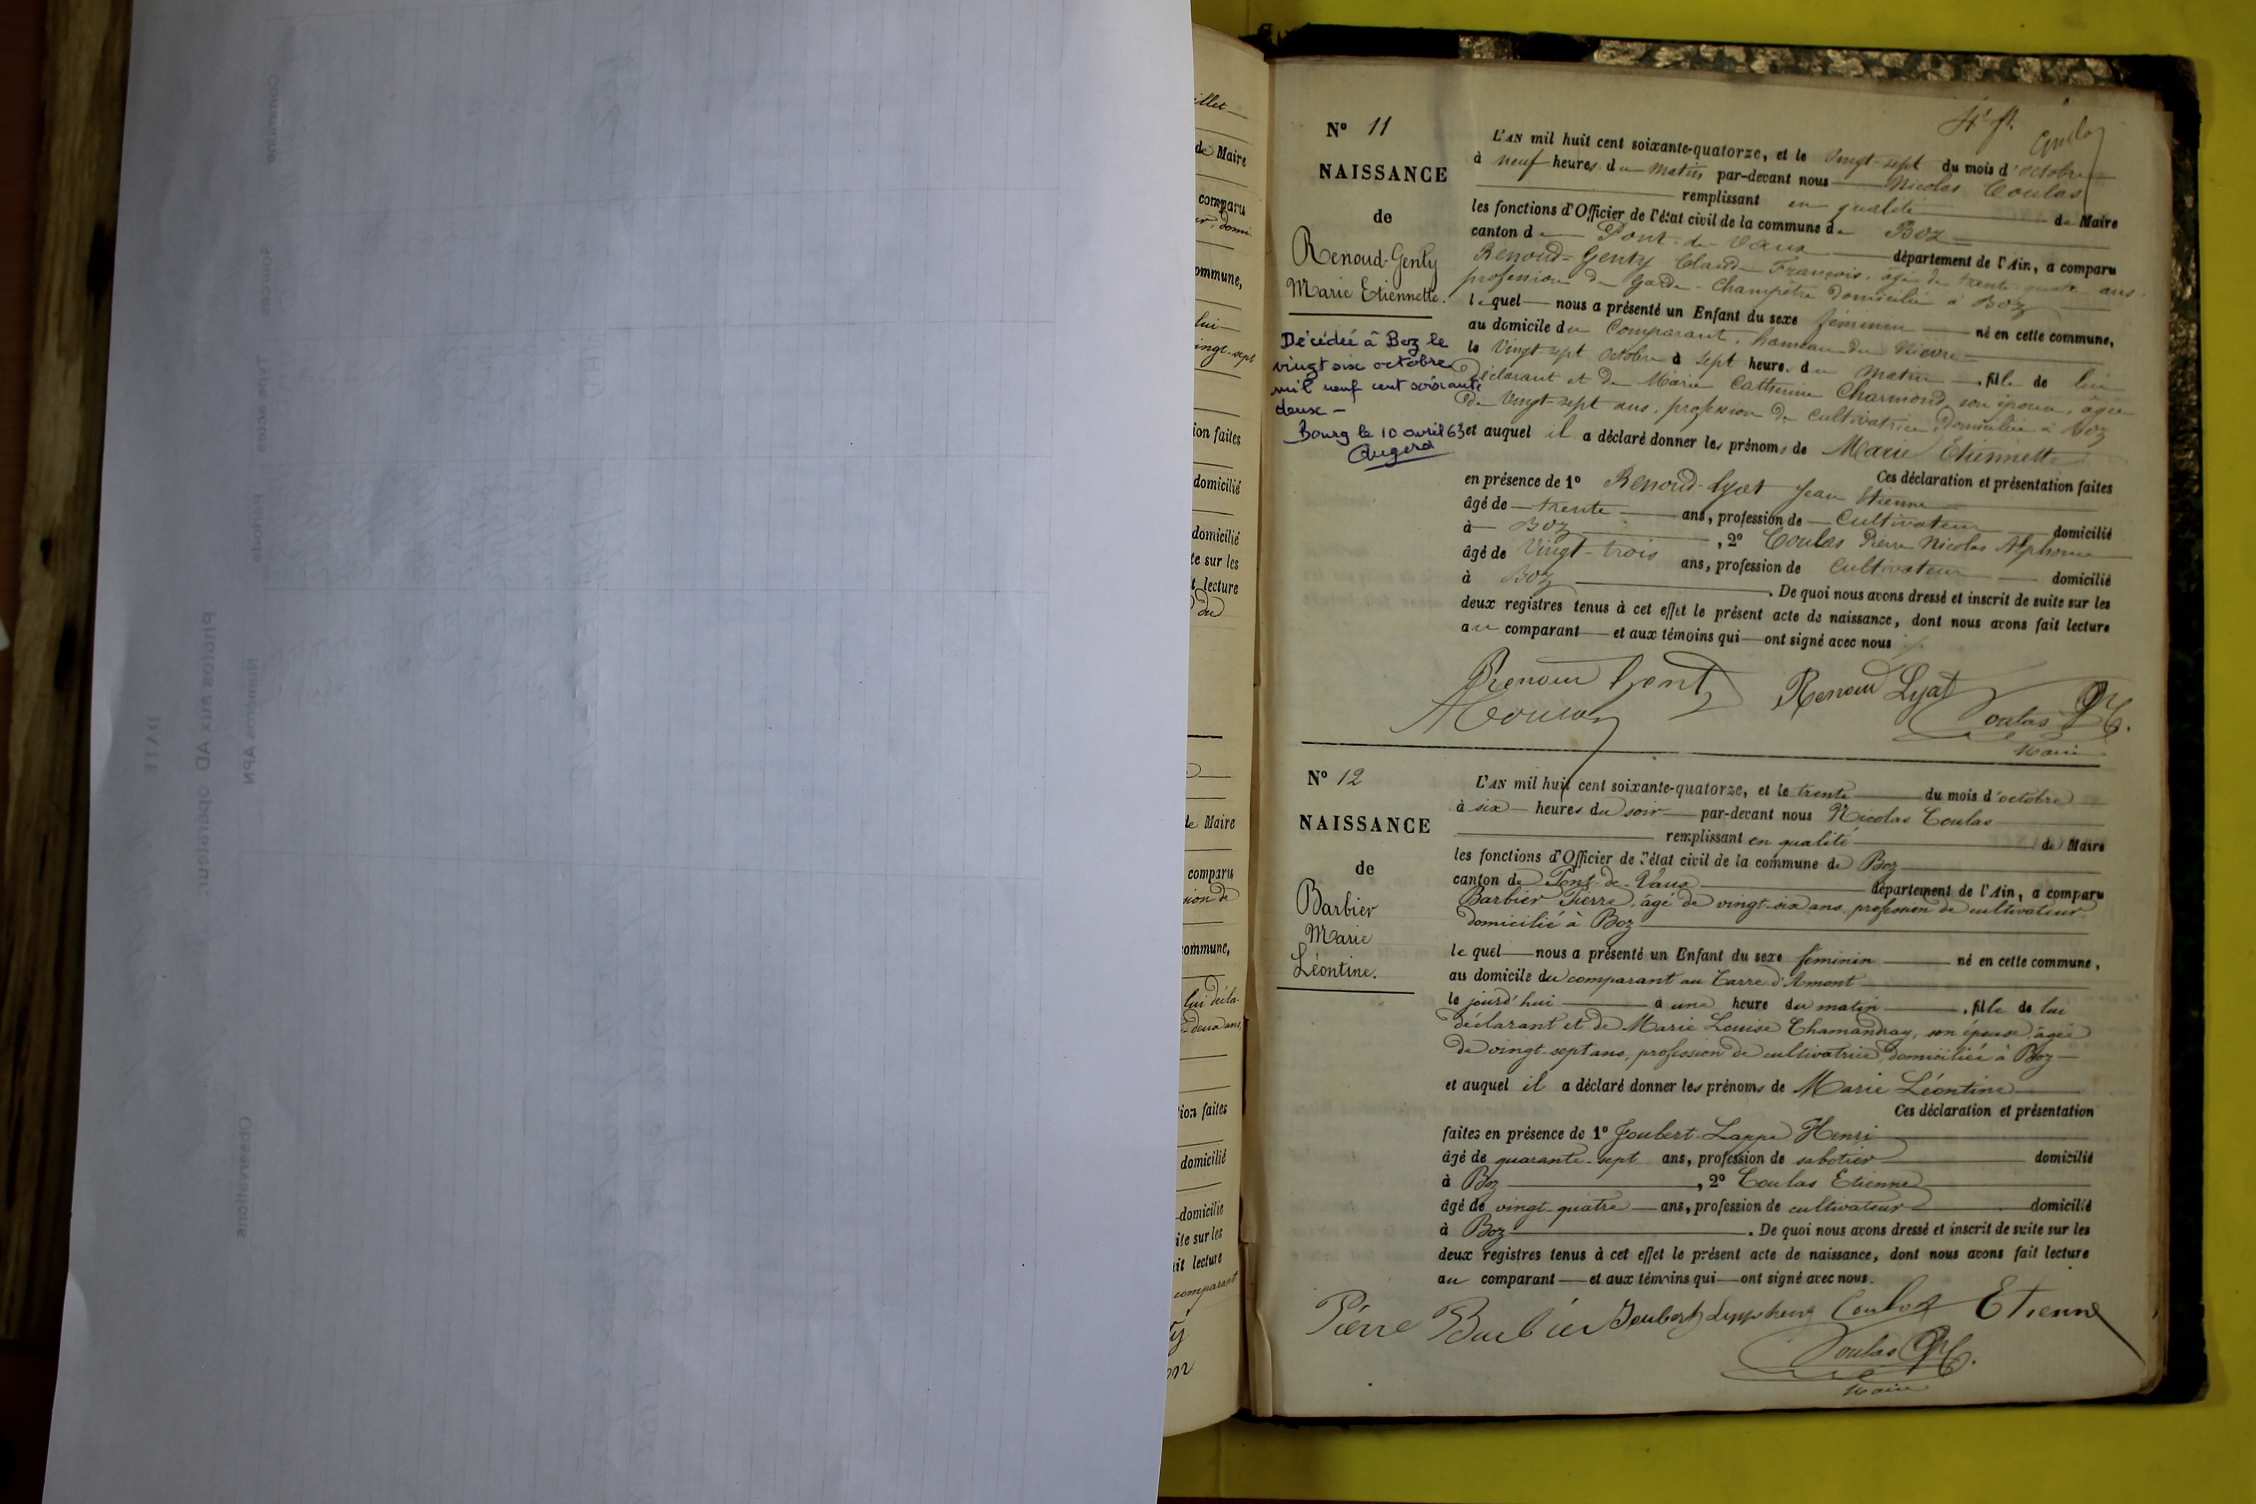 illet
de Maire
comparu
ommune,
lui
ingt-sept
ion faites
domicilié
domicilié
te sur les
t lecture
du
de Maire
comparu
sion de
commune,
lui décla-
deux ans,
ion faites
domicilié
domicilié
ite sur les
it lecture
comparant
4e ft.
Nº 11
NAISSANCE
de
Renoud-Genty
Marie Etiennette.
Décédée à Boz le
vingt six octobre
mil neuf cent soixante
deux -
Bourg le 10 avril 63
L'AN mil huit cent soixante-quatorze, et le vingt-sept du mois d'octobre
à neuf heures du matin par-devant nous Nicolas Coulas
remplissant en qualité de Maire
les fonctions d'Officier de l'état civil de la commune de Boz
canton de Pont-de-Vaux département de l'Ain, a comparu
Renoud-Genty Claude François, âgé de trente-quatre ans,
profession de Garde-Champêtre domicilié à Boz
lequel nous a présenté un Enfant du sexe féminin né en cette commune,
au domicile du Comparant, hameau de
le vingt-sept octobre à sept heures du matin, fille de lui
déclarant et de Marie Catherine Charmond, son épouse, âgée
de vingt-sept ans, profession de cultivatrice, domiciliée à Boz
et auquel il a déclaré donner les prénoms de Marie Etiennette
Ces déclaration et présentation faites
en présence de 1º Renoud-Lyat Jean Etienne
âgé de trente ans, profession de Cultivateur domicilié
à Boz, 2º Coulas Pierre Nicolas Alphonse
âgé de vingt-trois ans, profession de cultivateur domicilié
à Boz. De quoi nous avons dressé et inscrit de suite sur les
deux registres tenus à cet effet le présent acte de naissance, dont nous avons fait lecture
au comparant et aux témoins qui ont signé avec nous
Renoud Genty
Renoud Lyat
Coulas
Maire
Nº 12
NAISSANCE
de
Barbier
Marie
Léontine.
L'AN mil huit cent soixante-quatorze, et le trente du mois d'octobre
à six heures du soir par-devant nous Nicolas Coulas
remplissant en qualité de Maire
les fonctions d'Officier de l'état civil de la commune de Boz
canton de Pont-de-Vaux département de l'Ain, a comparu
Barbier Pierre, âgé de vingt-six ans, profession de cultivateur
domicilié à Boz
lequel nous a présenté un Enfant du sexe féminin né en cette commune,
au domicile du comparant au Tarre d'Amont
le jourd'hui à une heure du matin, fille de lui
déclarant et de Marie Louise Chamandray, son épouse, âgée
de vingt-sept ans, profession de cultivatrice, domiciliée à Boz
et auquel il a déclaré donner les prénoms de Marie Léontine
Ces déclaration et présentation
faites en présence de 1º Joubert-Lappe Henri
âgé de quarante-sept ans, profession de sabotier domicilié
à Boz, 2º Coulas Etienne
âgé de vingt-quatre ans, profession de cultivateur domicilié
à Boz. De quoi nous avons dressé et inscrit de suite sur les
deux registres tenus à cet effet le présent acte de naissance, dont nous avons fait lecture
au comparant et aux témoins qui ont signé avec nous.
Pierre Barbier Joubert Coulas Etienne
Coulas
Maire